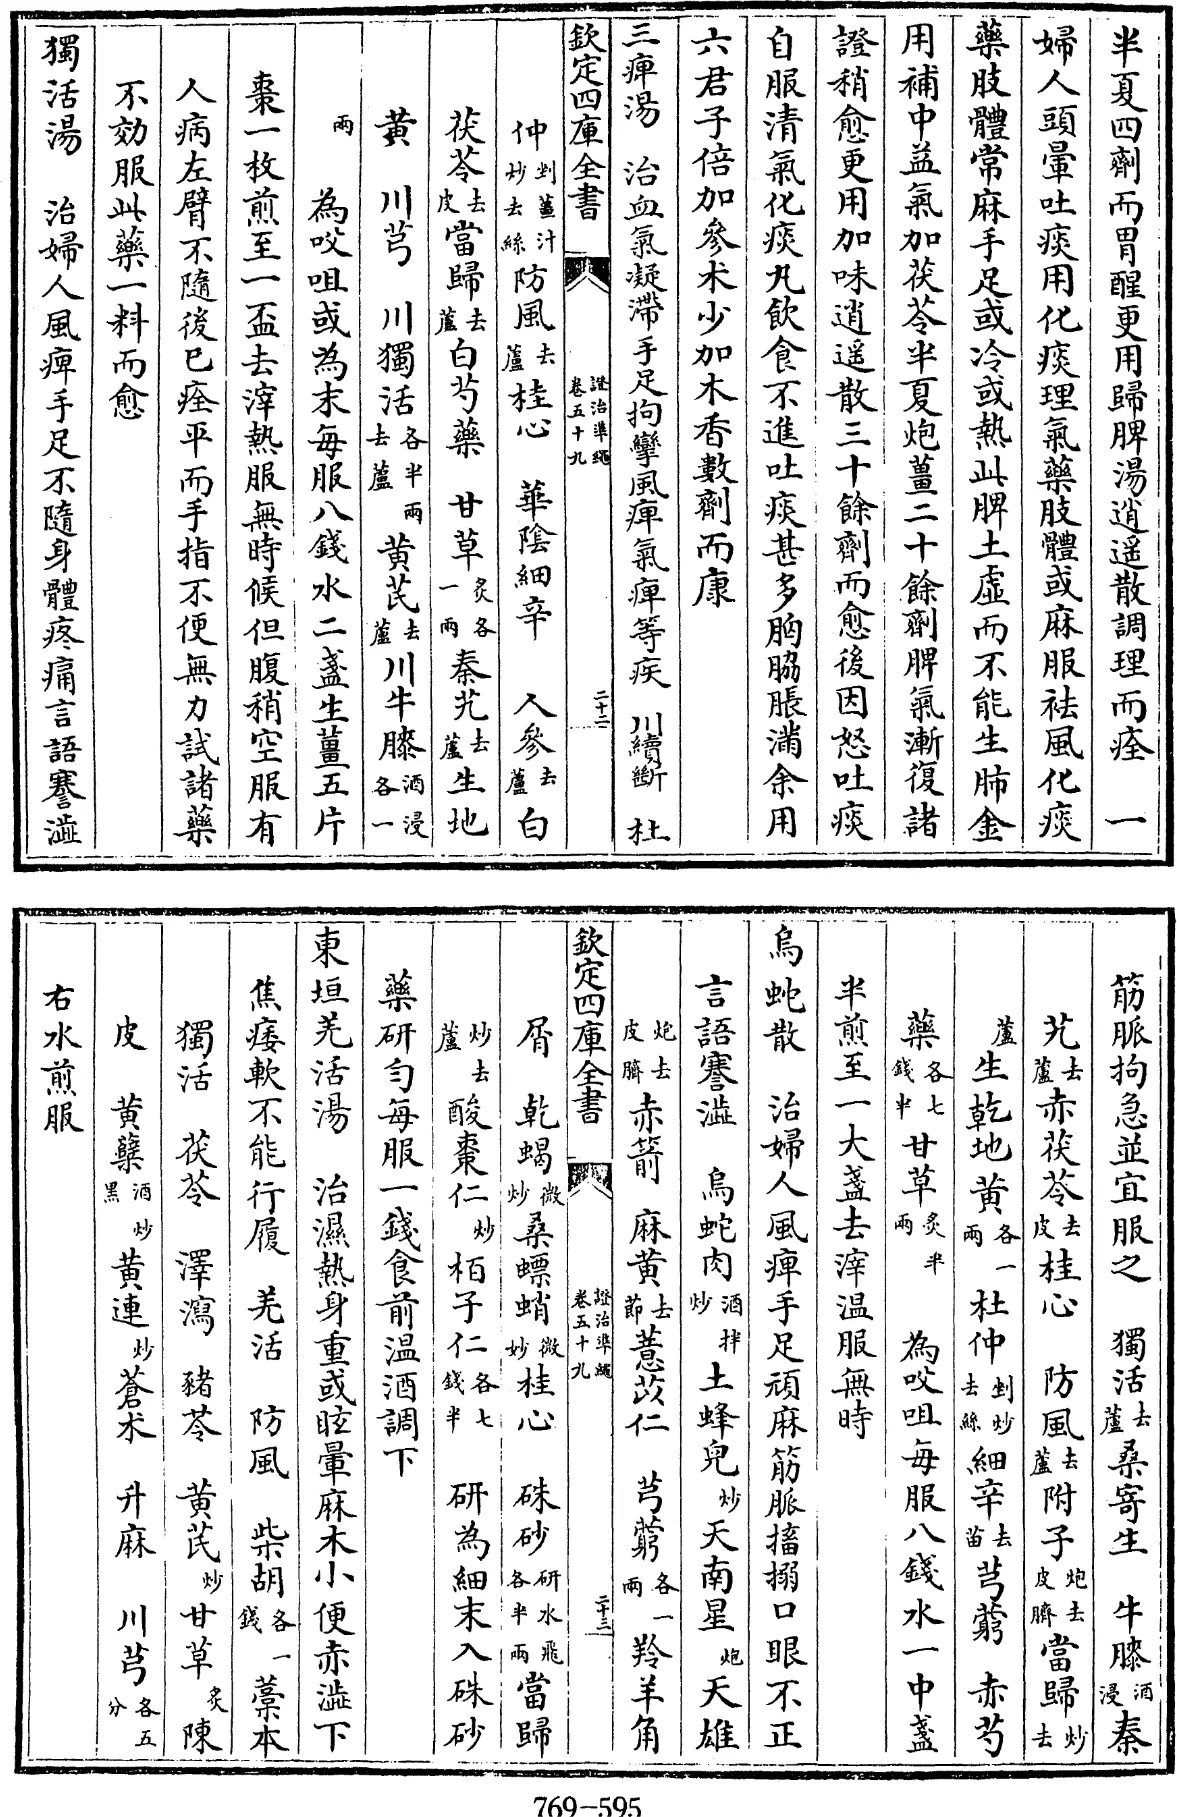 半夏四劑而胃醒更用歸脾湯逍遥散調理而痊　一
婦人頭暈吐痰用化痰理氣藥肢體或麻服祛風化痰
藥肢體常麻手足或冷或熱此脾土虛而不能生肺金
用補中益氣加茯苓半夏炮薑二十餘劑脾氣漸復諸
證稍愈更用加味逍遥散三十餘劑而愈後因怒吐痰
自服清氣化痰丸飲食不進吐痰甚多胸脇脹滿余用
六君子倍加參术少加木香數劑而康
三痺湯　治血氣凝滯手足拘攣風痺氣痺等疾　川續斷　杜
欽定四庫全書　證治準繩卷五十九　二十二
仲剉薑汁炒去絲防風去蘆桂心　華陰細辛　人參去蘆白
茯苓去皮當歸去蘆白芍藥　甘草炙各一兩秦艽去蘆生地
黃　川芎　川獨活各半兩去蘆黄芪去蘆川牛膝酒浸各一
兩　為㕮咀或為末每服八錢水二盞生薑五片
棗一枚煎至一盃去滓熱服無時候但腹稍空服有
人病左臂不隨後已痊平而手指不便無力試諸藥
不効服此藥一料而愈
獨活湯　治婦人風痺手足不隨身體疼痛言語蹇澁
筋脈拘急並宜服之　獨活去蘆桑寄生　牛膝酒浸秦
艽去蘆赤茯苓去皮桂心　防風去蘆附子炮去皮臍當歸炒去
蘆生乾地黄各一兩杜仲剉炒去絲細辛去苗芎藭　赤芍
藥各七錢半甘草炙半兩　為㕮咀每服八錢水一中盞
半煎至一大盞去滓温服無時
烏蛇散　治婦人風痺手足頑麻筋脈搐搦口眼不正
言語蹇澁　烏蛇肉酒拌炒土蜂兒炒天南星炮天雄
炮去皮臍赤箭　麻黄去節薏苡仁　芎藭各一兩羚羊角
欽定四庫全書　證治準繩卷五十九　二十三
屑　乾蝎微炒桑螵蛸微炒桂心　硃砂研水飛各半兩當歸
炒去蘆酸棗仁炒栢子仁各七錢半　研為細末入硃砂
藥研匀每服一錢食前温酒調下
東垣羌活湯　治濕熱身重或眩暈麻木小便赤澁下
焦痿軟不能行履　羌活　防風　柴胡各一錢藁本
獨活　茯苓　澤瀉　豬苓　黄芪炒甘草炙陳
皮　黄蘗酒炒黑黄連炒蒼术　升麻　川芎各五分
右水煎服
769-595